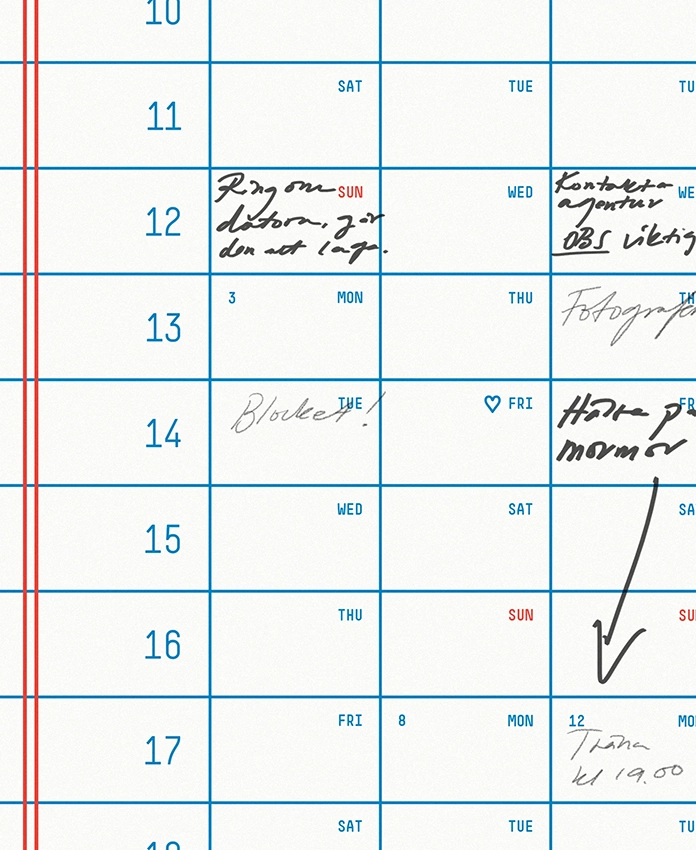 10
11 SAT TUE TU
12 SUN WED WE
Ring om
datorn, går
den att laga.
Kontakta
agentur
OBS viktig
13 3 MON THU TH
Fotografe
14 TUE ♡ FRI FR
Blocket!
Hälsa på
mormor
15 WED SAT SA
16 THU SUN SU
17 FRI 8 MON 12 MO
Träna
kl 19.00
18 SAT TUE TU